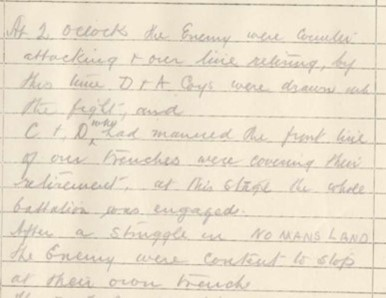 At 2 oclock the Enemy were counter
attacking & our line retiring, by
this time D & A Coys were drawn into
the fight, and
C & D, who had manned the front line
of our trenches were covering their
retirement. at this stage the whole
battalion was engaged.
After a struggle in NO MANS LAND
the Enemy were content to stop
at their own trench